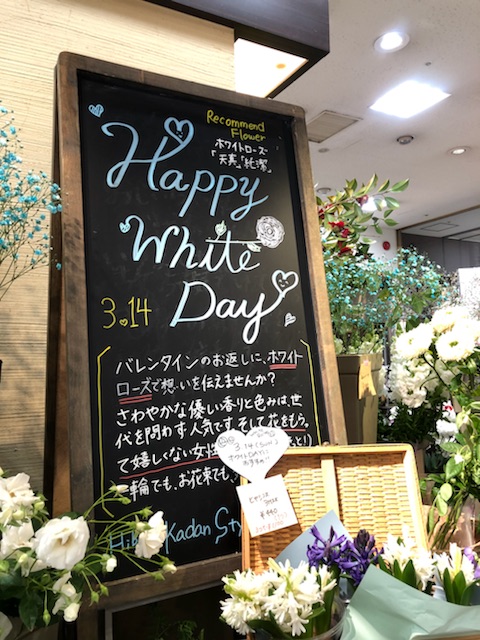 Recommend
Flower
ホワイトローズ
「天真」「純潔」
Happy
White
Day
3.14
バレンタインのお返しに、ホワイト
ローズで想いを伝えませんか?
さわやかな優しい香りと色みは、世
代を問わず人気です。そして花をもら
て嬉しくない女性
一輪でも、お花束でも、
Hibiya Kadan Sty
3.14(SUN)
ホワイトDAYに
おすすめ!
¥440